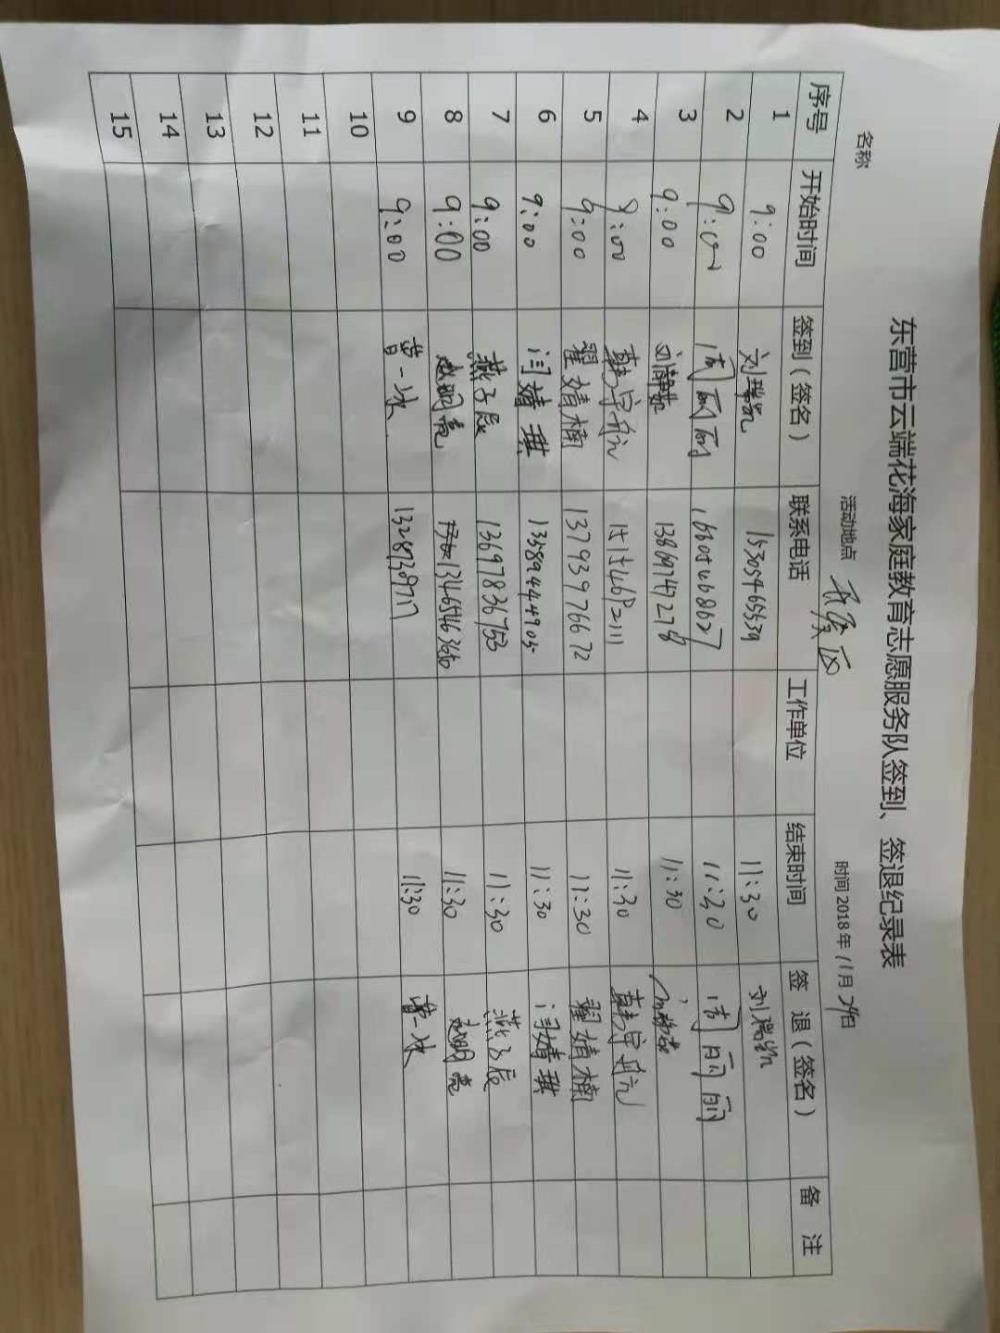 东营市云端花海家庭教育志愿服务队签到、签退纪录表
名称 活动地点 开发区 时间 2018年11月 日
序号 开始时间 签到(签名) 联系电话 工作单位 结束时间 签 退(签名) 备 注
1 9:00 15305465539 11:30
2 9:00 周丽丽 11:30 周丽丽
3 9:00 13869747278 11:30
4 9:00 11:30
5 9:00 翟婧楠 13793976672 11:30 翟婧楠
6 9:00 闫婧琪 13589444905 11:30 闫婧琪
7 9:00 燕子辰 13697836753 11:30 燕子辰
8 9:00 赵明亮 11:30 赵明亮
9 9:00 曹一冰 13287309717 11:30 曹一冰
10
11
12
13
14
15